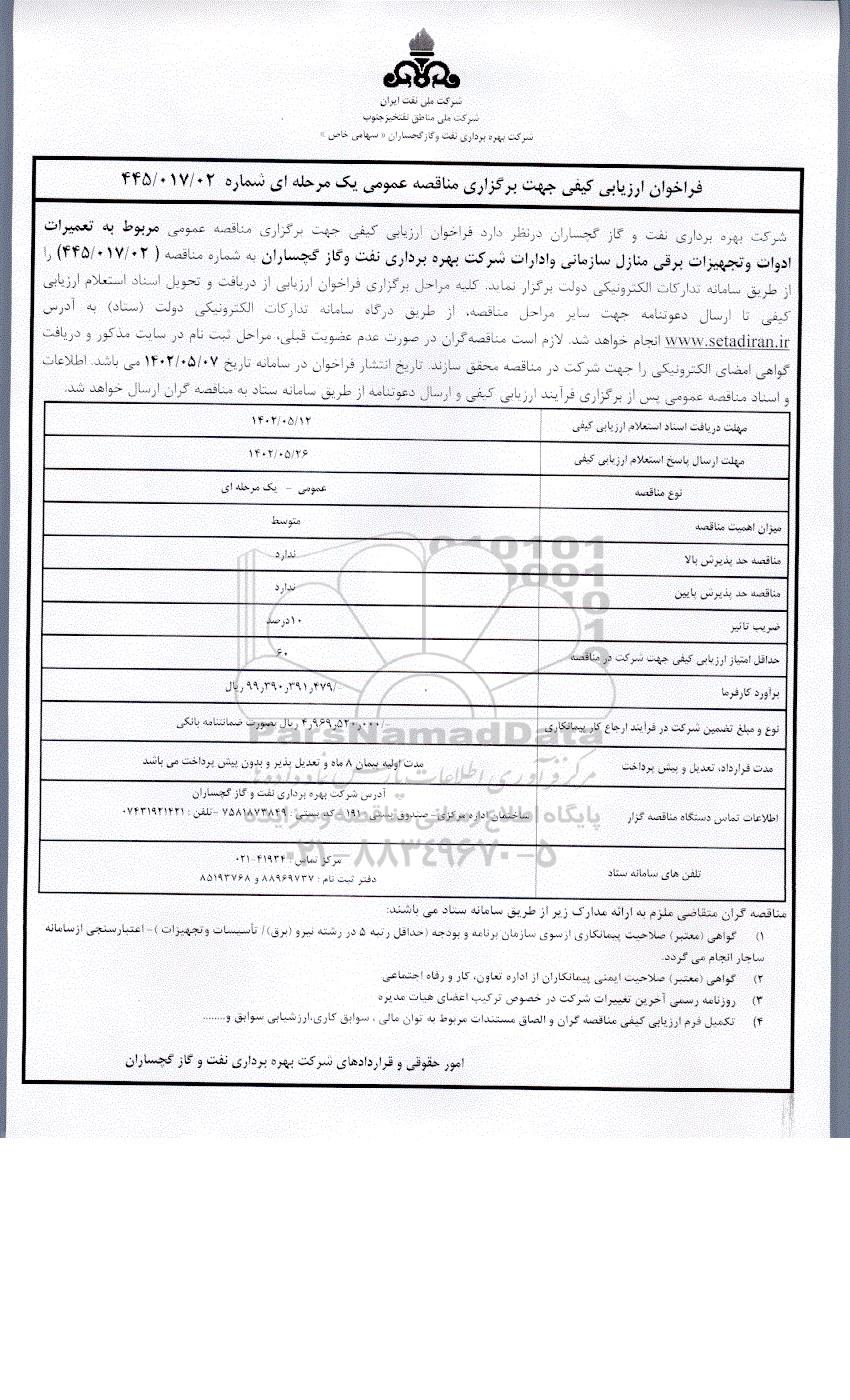 شرکت ملی نفت ایران
شرکت ملی مناطق نفتخیز جنوب
شرکت بهره برداری نفت و گاز گچساران « سهامی خاص »
فراخوان ارزیابی کیفی جهت برگزاری مناقصه عمومی یک مرحله ای شماره ۴۴۵/۰۱۷/۰۲
شرکت بهره برداری نفت و گاز گچساران درنظر دارد فراخوان ارزیابی کیفی جهت برگزاری مناقصه عمومی مربوط به تعمیرات
ادوات وتجهیزات برقی منازل سازمانی وادارات شرکت بهره برداری نفت وگاز گچساران به شماره مناقصه ( ۴۴۵/۰۱۷/۰۲) را
از طریق سامانه تدارکات الکترونیکی دولت برگزار نماید. کلیه مراحل برگزاری فراخوان ارزیابی از دریافت و تحویل اسناد استعلام ارزیابی
کیفی تا ارسال دعوتنامه جهت سایر مراحل مناقصه، از طریق درگاه سامانه تدارکات الکترونیکی دولت (ستاد) به آدرس
www.setadiran.ir انجام خواهد شد. لازم است مناقصه‌گران در صورت عدم عضویت قبلی، مراحل ثبت نام در سایت مذکور و دریافت
گواهی امضای الکترونیکی را جهت شرکت در مناقصه محقق سازند. تاریخ انتشار فراخوان در سامانه تاریخ ۱۴۰۲/۰۵/۰۷ می باشد. اطلاعات
و اسناد مناقصه عمومی پس از برگزاری فرآیند ارزیابی کیفی و ارسال دعوتنامه از طریق سامانه ستاد به مناقصه گران ارسال خواهد شد.
مهلت دریافت اسناد استعلام ارزیابی کیفی ۱۴۰۲/۰۵/۱۲
مهلت ارسال پاسخ استعلام ارزیابی کیفی ۱۴۰۲/۰۵/۲۶
نوع مناقصه عمومی - یک مرحله ای
میزان اهمیت مناقصه متوسط
مناقصه حد پذیرش بالا ندارد
مناقصه حد پذیرش پایین ندارد
ضریب تاثیر ۱۰درصد
حداقل امتیاز ارزیابی کیفی جهت شرکت در مناقصه ۶۰
برآورد کارفرما ۹۹٫۳۹۰٫۳۹۱٫۴۷۹/- ریال
نوع و مبلغ تضمین شرکت در فرآیند ارجاع کار پیمانکاری ۴٫۹۶۹٫۵۲۰٫۰۰۰/- ریال بصورت ضمانتنامه بانکی
مدت قرارداد، تعدیل و پیش پرداخت مدت اولیه پیمان ۸ ماه و تعدیل پذیر و بدون پیش پرداخت می باشد
آدرس شرکت بهره برداری نفت و گاز گچساران
اطلاعات تماس دستگاه مناقصه گزار ساختمان اداره مرکزی- صندوق پستی : ۱۹۱ - کد پستی : ۷۵۸۱۸۷۳۸۴۹ -تلفن : ۰۷۴۳۱۹۲۱۴۲۱
تلفن های سامانه ستاد مرکز تماس : ۴۱۹۳۴-۰۲۱
دفتر ثبت نام : ۸۸۹۶۹۷۳۷ و ۸۵۱۹۳۷۶۸
ParsNamadData
مرکز فرآوری اطلاعات پارس نماد داده ها
پایگاه اطلاع رسانی مناقصه و مزایده
۰۲۱-۸۸۳۴۹۶۷۰-۵
مناقصه گران متقاضی ملزم به ارائه مدارک زیر از طریق سامانه ستاد می باشند:
۱) گواهی (معتبر) صلاحیت پیمانکاری ازسوی سازمان برنامه و بودجه (حداقل رتبه ۵ در رشته نیرو (برق)/ تأسیسات وتجهیزات )- اعتبارسنجی ازسامانه
ساجار انجام می گردد.
۲) گواهی (معتبر) صلاحیت ایمنی پیمانکاران از اداره تعاون، کار و رفاه اجتماعی
۳) روزنامه رسمی آخرین تغییرات شرکت در خصوص ترکیب اعضای هیات مدیره
۴) تکمیل فرم ارزیابی کیفی مناقصه گران و الصاق مستندات مربوط به توان مالی ، سوابق کاری،ارزشیابی سوابق و........
امور حقوقی و قراردادهای شرکت بهره برداری نفت و گاز گچساران